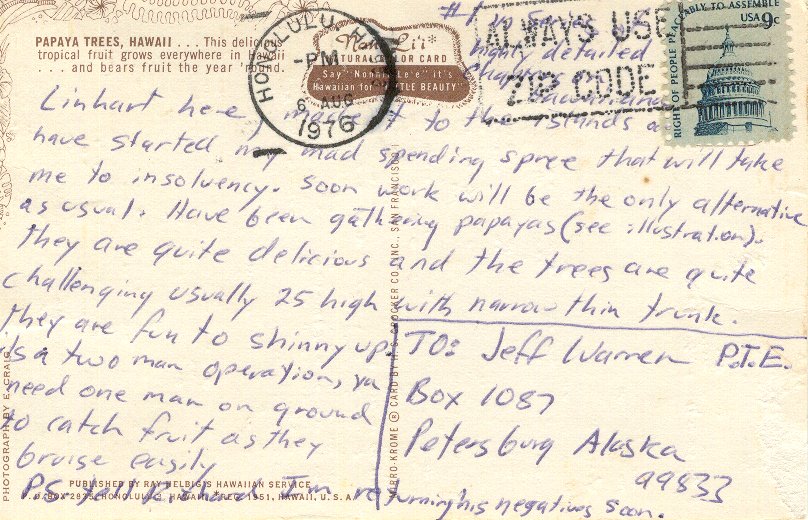 PAPAYA TREES, HAWAII . . . This delicious
tropical fruit grows everywhere in Hawaii
. . . and bears fruit the year 'round.
HONOLULU, HI
PM
6 AUG
1976
Nani Li'i*
NATURAL COLOR CARD
Say "Nonnee Lee'e" it's
Hawaiian for "LITTLE BEAUTY"
#1 in
highly detailed
Hawaiiana
ALWAYS USE
ZIP CODE
RIGHT OF PEOPLE PEACEABLY TO ASSEMBLE
USA 9c
Linhart here, I made it to the islands
have started my mad spending spree that will take
me to insolvency. Soon work will be the only alternative
as usual. Have been gathering papayas (see illustration).
They are quite delicious and the trees are quite
challenging usually 25 high with narrow thin trunk.
They are fun to shinny up.
its a two man operation, ya
need one man on ground
to catch fruit as they
bruise easily
PS tell I'm returning his negatives soon.
TO: Jeff Warren P.T.E.
Box 1087
Petersburg Alaska
99833
PHOTOGRAPH BY E. CRAIG
MIRRO-KROME ® CARD BY H. S. CROCKER CO., INC., SAN FRANCISCO
PUBLISHED BY RAY HELBIG'S HAWAIIAN SERVICE
P.O. BOX 2835, HONOLULU, HAWAII *REG. 1951, HAWAII, U.S.A.